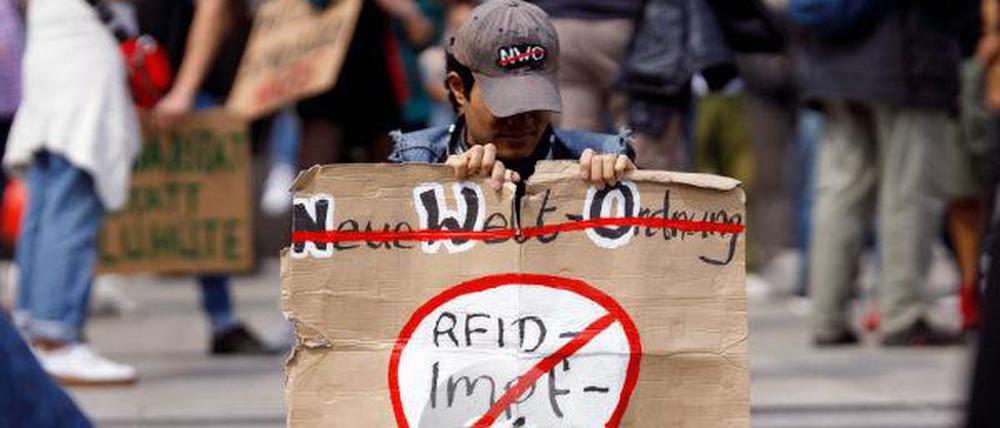 NWO
Neue Welt-Ordnung
RFID-
Impf-
STATT